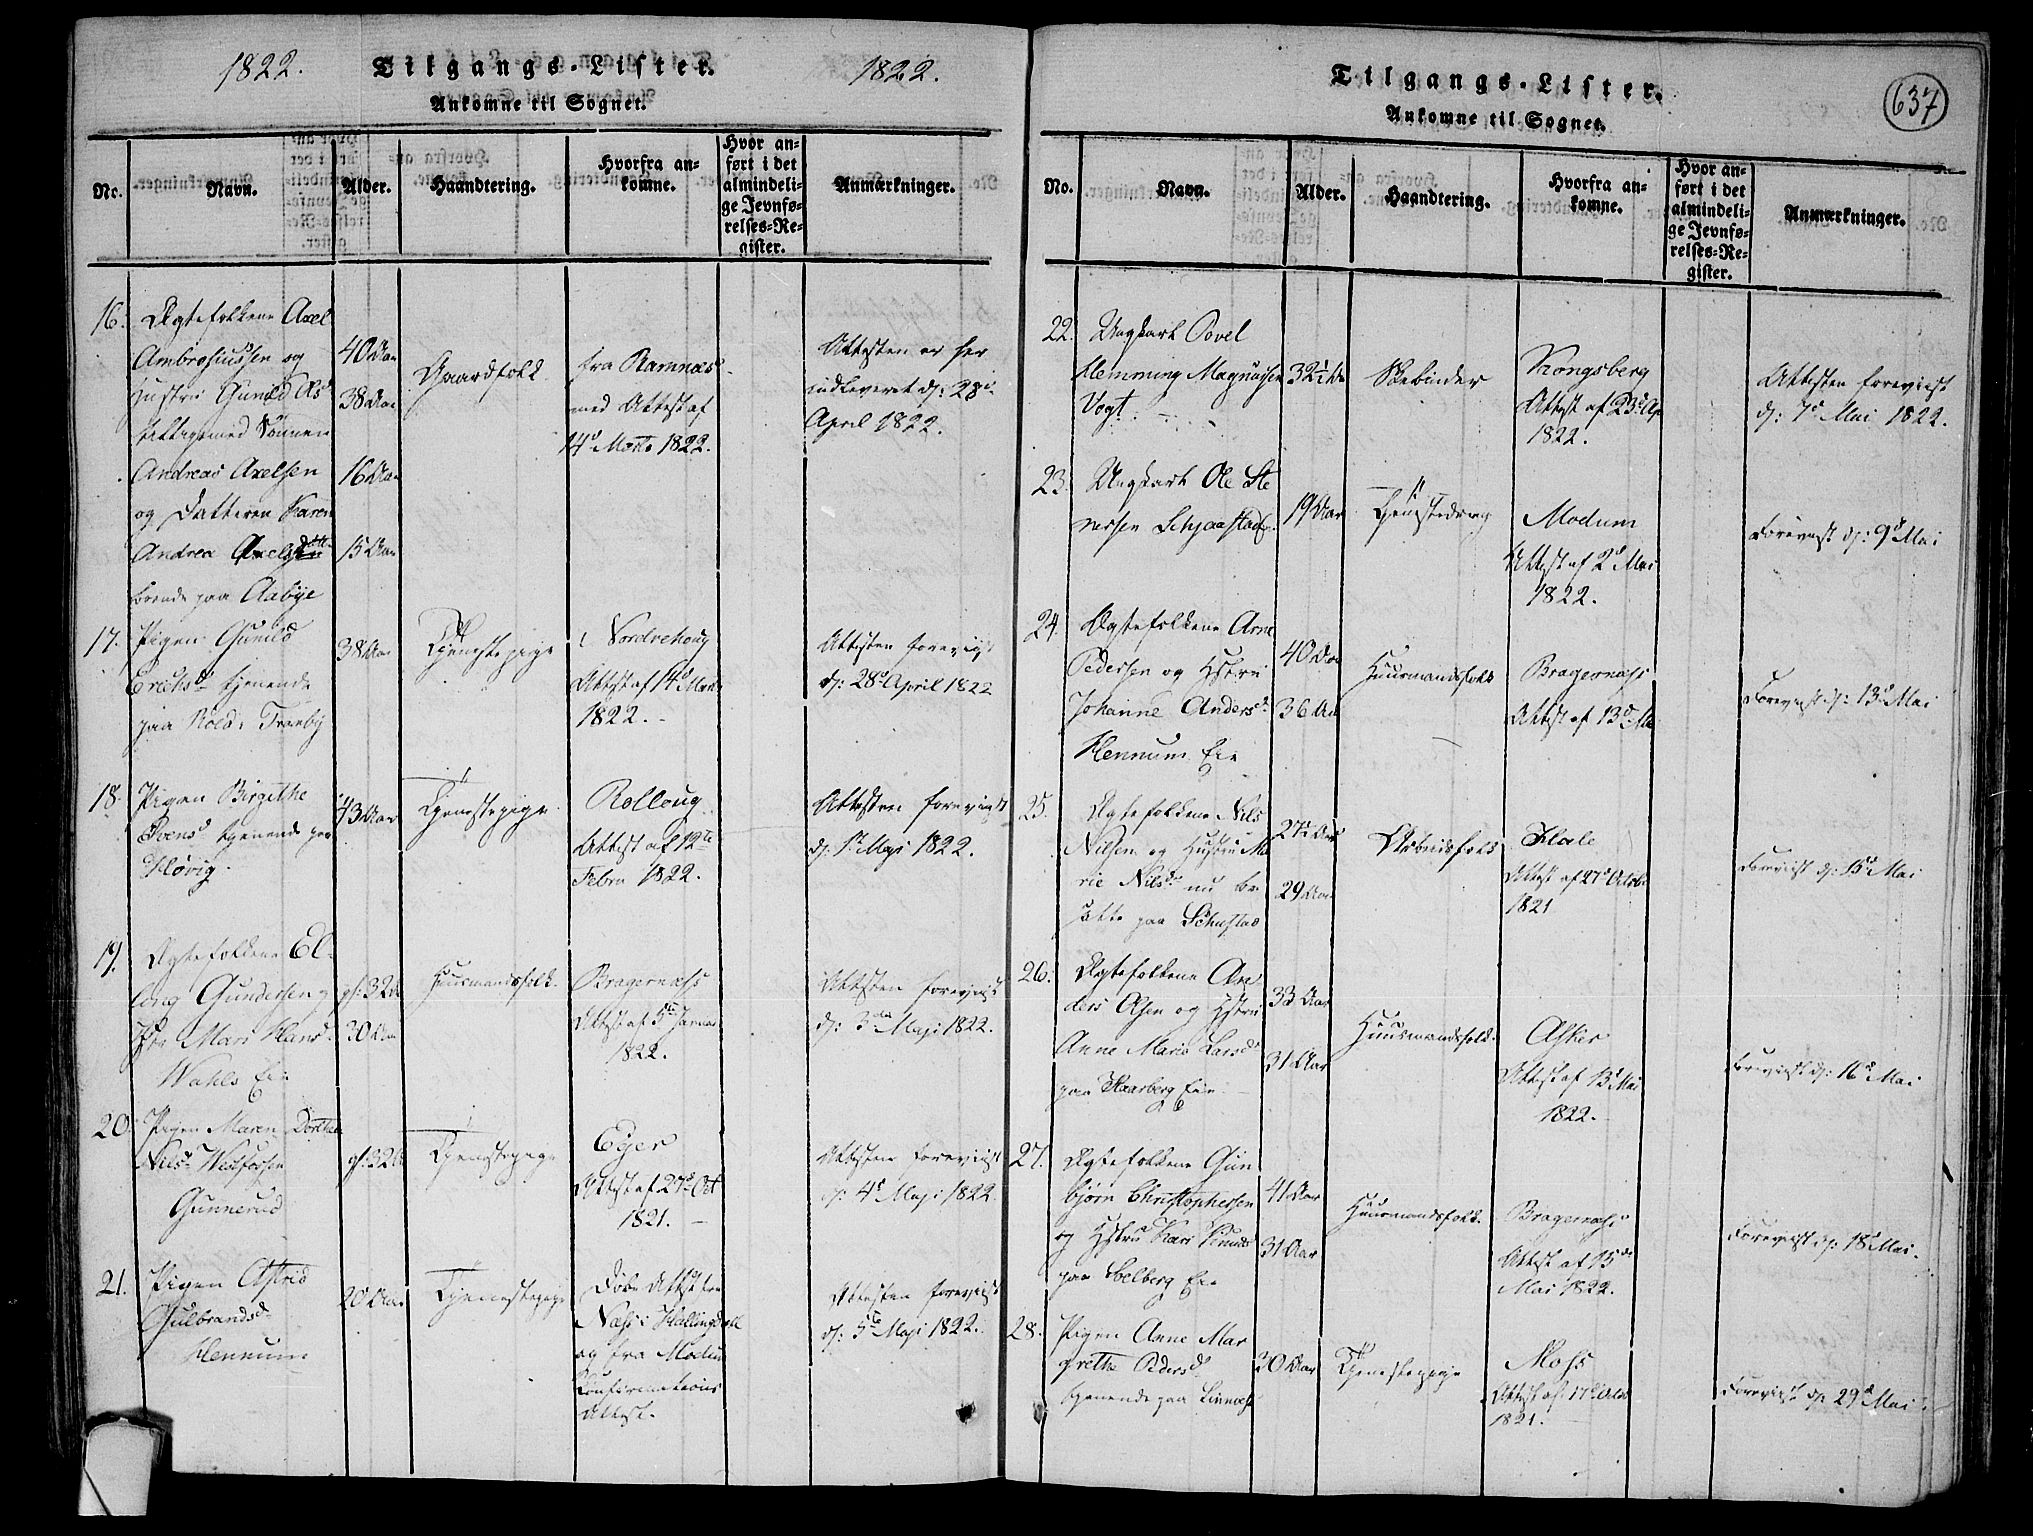 1822.
Tilgangs-Lister.
1822.
Ankomne til Sognet.
No.
Navn.
Alder.
Haandtering.
Hvorfra an-
komne.
Hvor an-
ført i det
almindeli-
ge Jevnfø-
relses-Re-
gister.
Anmærkninger.
16.
Ægtefolkene Axel
Ambrosiussen og
Hustru Gunild Ols
med Sønnen
Andreas Axelsen
og Datteren Karen
Andrea Axels
boende paa Aabye
40 Aar
38 Aar
16 Aar
15 Aar
Gaardfolk
fra Ramnæs
med Attest af
14d Marts 1822.
Attesten er her
indleveret d: 28d
April 1822.
17.
Pigen Gunild
Ericksd tjenende
paa Tranby
38 Aar
Tjenestepige
Nordrehoug
Attest af 14d Marts
1822.
Attesten foreviist
d: 28d April 1822
18.
Pigen Birgithe
Svensd tjenende paa
Høvig.
43 Aar
Tjenestepige
Rolloug
Attest af 12te
Febru 1822.
Attesten foreviist
d: 1d Maji 1822.
19.
Ægtefolkene El-
ling Gundersen
Mari Hans
Wahls Eie
32
30 Aar
Huusmandsfolk.
Bragernæss
Attest af 5te Januar
1822.
Attesten foreviist
d: 3die Maji 1822.
20.
Pigen Maren Dorthea
Nilsd Westfossen
Gunnerud
32
Tjenestepige
Eger
Attest af 27d Oct
1821.
Attesten foreviist
d: 4d Maji 1822
21.
Pigen Astrid
Gulbrandsd
Hennum
20 Aar
Tjenestepige
Døbe Attest fra
Næss i Hallingdall
og fra Modum
Confirmations
Attest.
Attesten foreviist
d: 5te Maji 1822.
Tilgangs-Lister.
637
Ankomne til Sognet.
No.
Navn.
Alder.
Haandtering.
Hvorfra an-
komne.
Hvor an-
ført i det
almindeli-
ge Jevnfø-
relses-Re-
gister.
Anmærkninger.
22.
Ungkarl Povel
Hemming Magnussen
Vogt.
32½
Kongsberg
Attest af 23d Ap
1822.
Attesten foreviist
d: 7d Mai 1822.
23.
Ungkarl Ole Ste
nersen
19 Aar
Tjenestedreng
Modum
Attest af 2d Mai
1822.
Foreviist d: 9d Mai
24.
Ægtefolkene Arne
Pedersen og Hstru
Johanne Andersd
Hennum Eie
40 Aar
36 Aar
Huusmandsfolk
Bragernæss
Attest af 13d Ma
Foreviist d: 13d Mai
25.
Ægtefolkene Nils
Nilsen og Hustru Ma
rie Nilsd nu bo
satte paa
27½ Aar
29 Aar
Arbeidsfolk
Hole
Attest af 27d Octob
1821
Foreviist d: 15d Mai
26.
Ægtefolkene An
ders Olsen og Hstru
Anne Maria Larsd
paa Haarberg Eie
33 Aar
31 Aar
Huusmandsfolk.
Asker
Attest af 13d Mai
1822.
Foreviist d: 16d Mai
27.
Ægtefolkene Gun
bjørn Christophersen
og Hstru Kari Knuds
paa Solberg Eie
41 Aar
31 Aar
Huusmandsfolk.
Bragernæss
Attest af 15de
Mai 1822.
Foreviist d: 18d Mai.
28.
Pigen Anne Mar
grethe Pedersd
tjenende paa Linnæs
30 Aar
Tjenestepige
Moss
Attest af 17d Octob
1821.
Foreviist d: 29d Mai